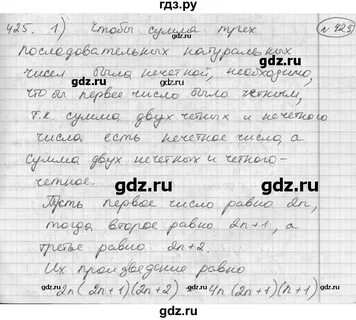 425. 1) Чтобы сумма трех № 425
последовательных натуральных
чисел была нечетной, необходимо,
чтобы первое число было четным,
т.к. сумма двух четных и нечетного
числа есть нечетное число, а
сумма двух нечетных и четного-
четное.
Пусть первое число равно 2n,
тогда второе равно 2n+1, а
третье равно 2n+2.
Их произведение равно
2n(2n+1)(2n+2) = 4n(2n+1)(n+1)
gdz.ru
gdz.ru
gdz.ru
gdz.ru
gdz.ru
gdz.ru
gdz.ru